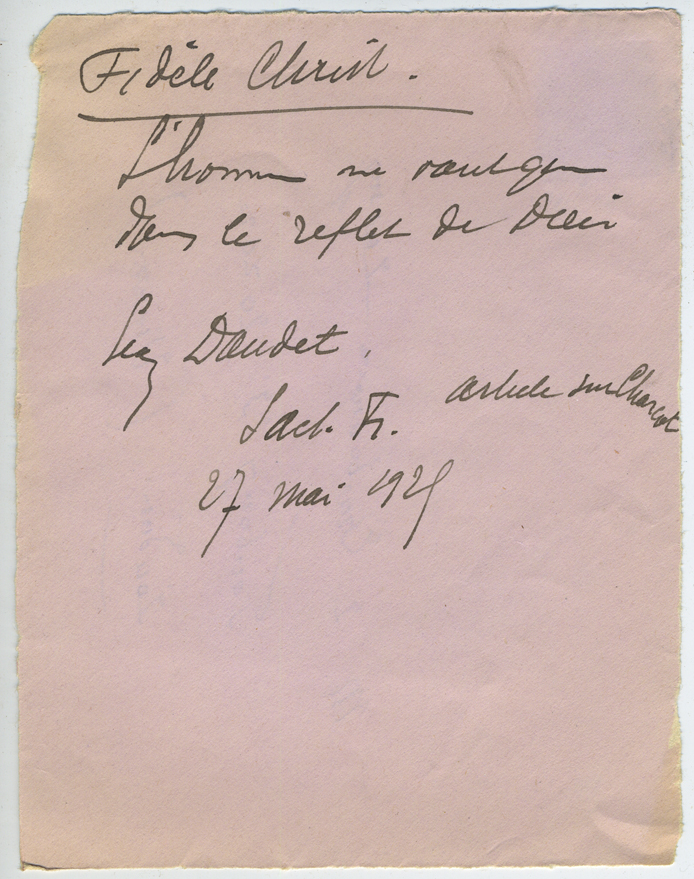 Fidèle Christ.
L'homme ne vaut que
dans le reflet de Dieu
Léon Daudet,
L'act. Fr. article sur Charcot
27 mai 1925